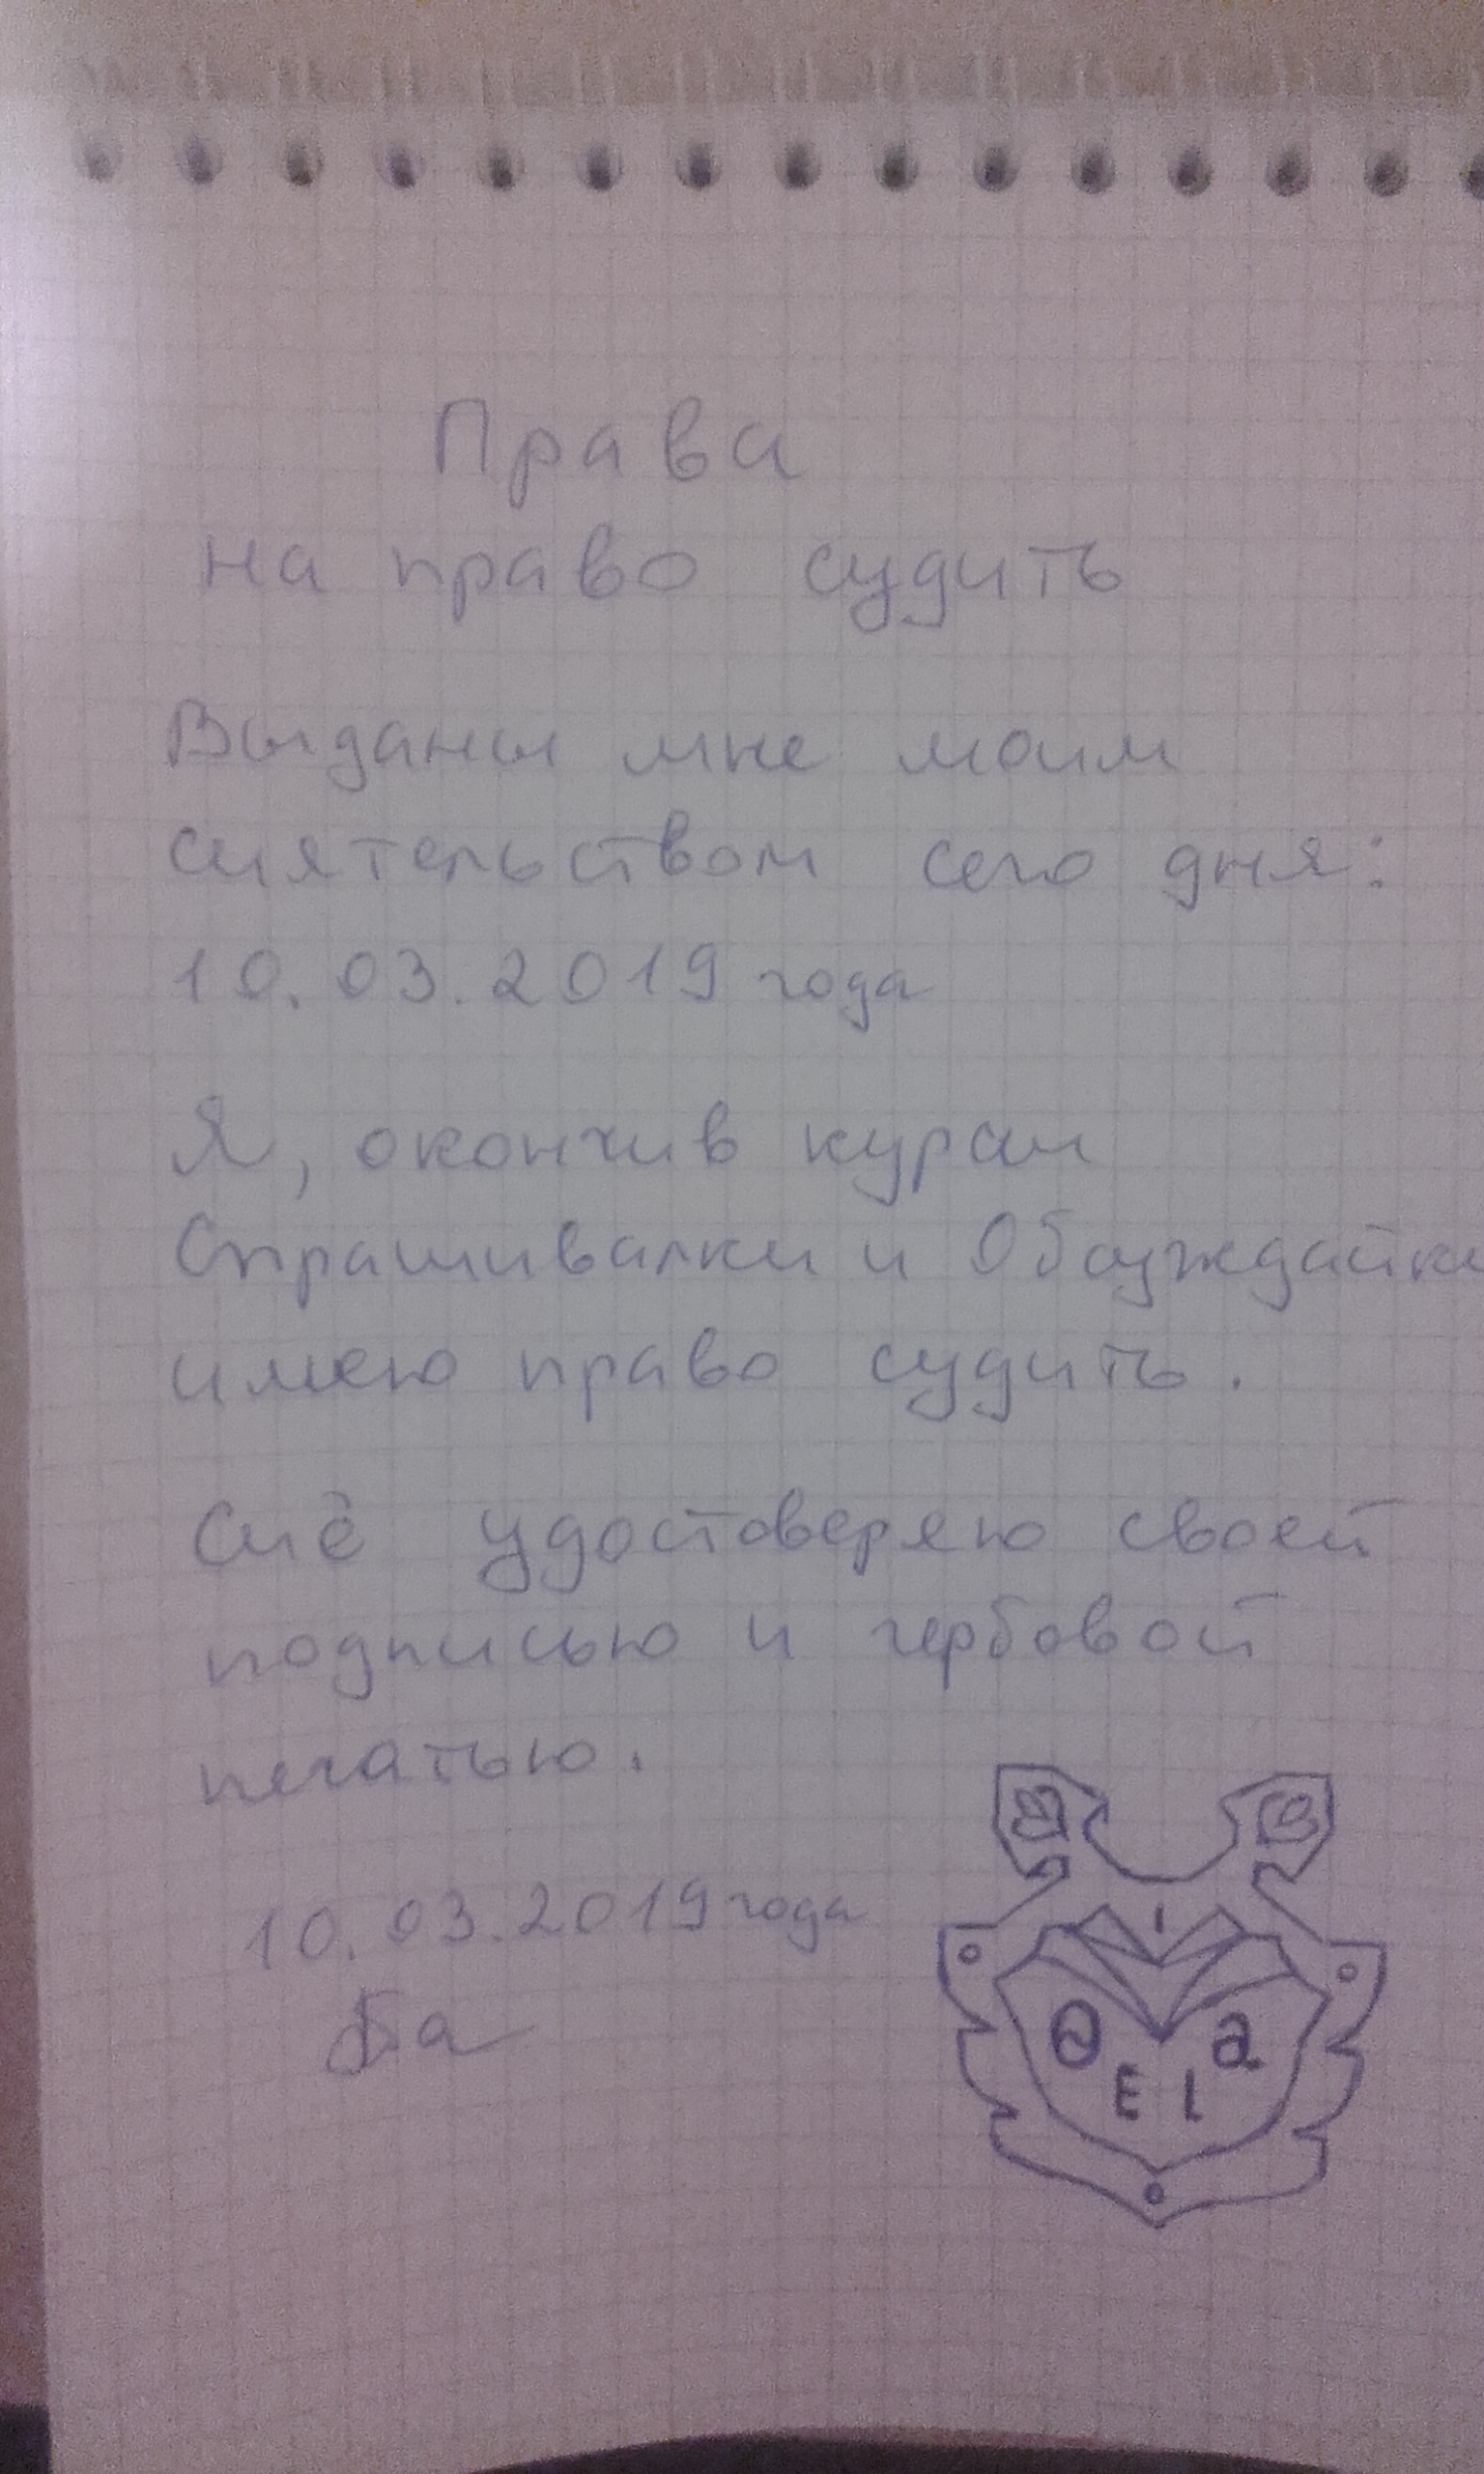 Права
на право судить
Выданы мне моим
сиятельством сего дня:
10.03.2019 года
Я, окончив курсы
Спрашивалки и Обсуждайки
имею право судить.
Сиё удостоверяю своей
подписью и гербовой
печатью.
10.03.2019 года
E L